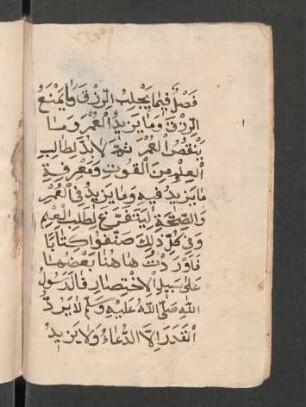 فصل فيما يجلب الرزق وما يمنع
الرزق وما يزيد العمر وما
ينقص العمر ثم لا بد لطالب
العلم من القوت ومعرفة
ما يزيد فيه وما يزيد في العمر
والصحة ليتفرغ لطلب العلم
وفي كل ذلك صنفوا كتابا
فاوردت هاهنا بعضها
على سبيل الاختصار قال رسول
الله صلى الله عليه وسلم لا يرد
القدر الا الدعاء ولا يزيد